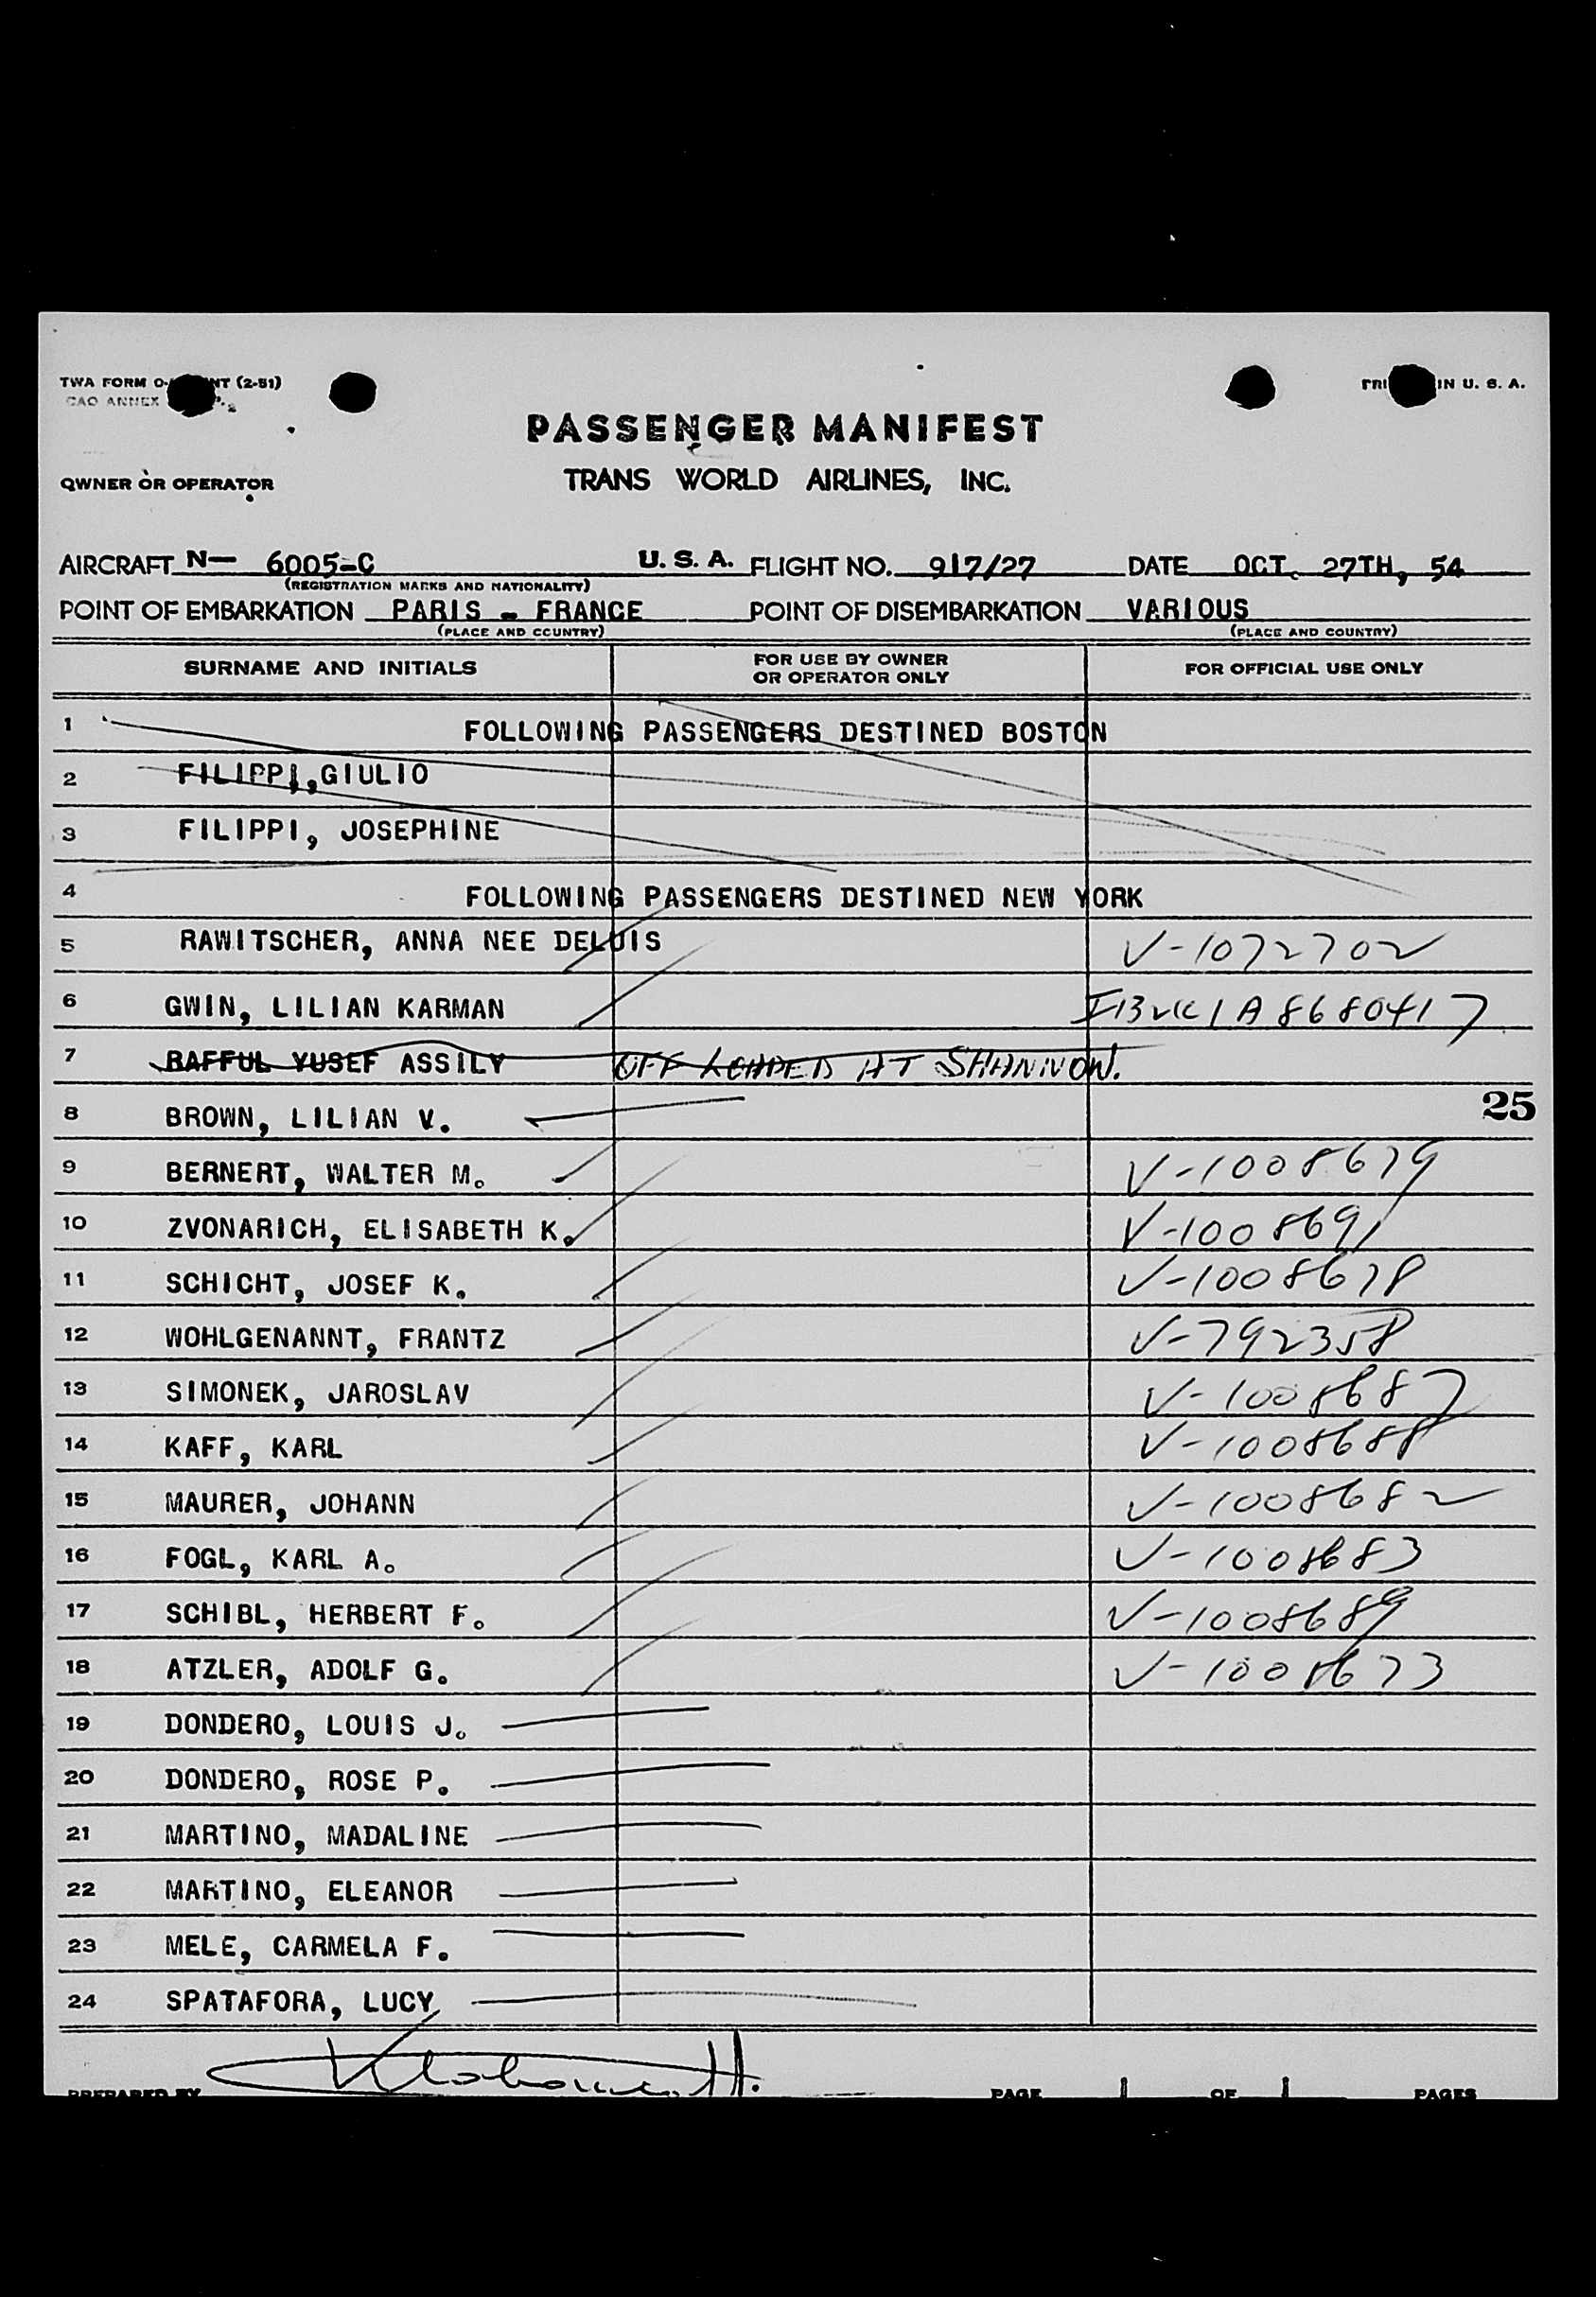 TWA FORM O- NT (2-51)
CAO ANNEX
IN U. S. A.
PASSENGER MANIFEST
OWNER OR OPERATOR
TRANS WORLD AIRLINES, INC.
AIRCRAFT N— 6005-C U. S. A. FLIGHT NO. 917/27 DATE OCT. 27TH, 54
(REGISTRATION MARKS AND NATIONALITY)
POINT OF EMBARKATION PARIS - FRANCE POINT OF DISEMBARKATION VARIOUS
(PLACE AND COUNTRY) (PLACE AND COUNTRY)
SURNAME AND INITIALS FOR USE BY OWNER OR OPERATOR ONLY FOR OFFICIAL USE ONLY
1 FOLLOWING PASSENGERS DESTINED BOSTON
2 FILIPPI,,GIULIO
3 FILIPPI, JOSEPHINE
4 FOLLOWING PASSENGERS DESTINED NEW YORK
5 RAWITSCHER, ANNA NEE DELUIS V-1072702
6 GWIN, LILIAN KARMAN A8680417
7 RAFFUL YUSEF ASSILY OFF LOADED AT SHANNON.
8 BROWN, LILIAN V. 25
9 BERNERT, WALTER M. V-1008679
10 ZVONARICH, ELISABETH K. V-1008691
11 SCHICHT, JOSEF K. V-1008678
12 WOHLGENANNT, FRANTZ V-792358
13 SIMONEK, JAROSLAV V-1008687
14 KAFF, KARL V-1008688
15 MAURER, JOHANN V-1008682
16 FOGL, KARL A. V-1008683
17 SCHIBL, HERBERT F. V-1008689
18 ATZLER, ADOLF G. V-1008673
19 DONDERO, LOUIS J.
20 DONDERO, ROSE P.
21 MARTINO, MADALINE
22 MARTINO, ELEANOR
23 MELE, CARMELA F.
24 SPATAFORA, LUCY
PREPARED BY PAGE 1 OF 1 PAGES